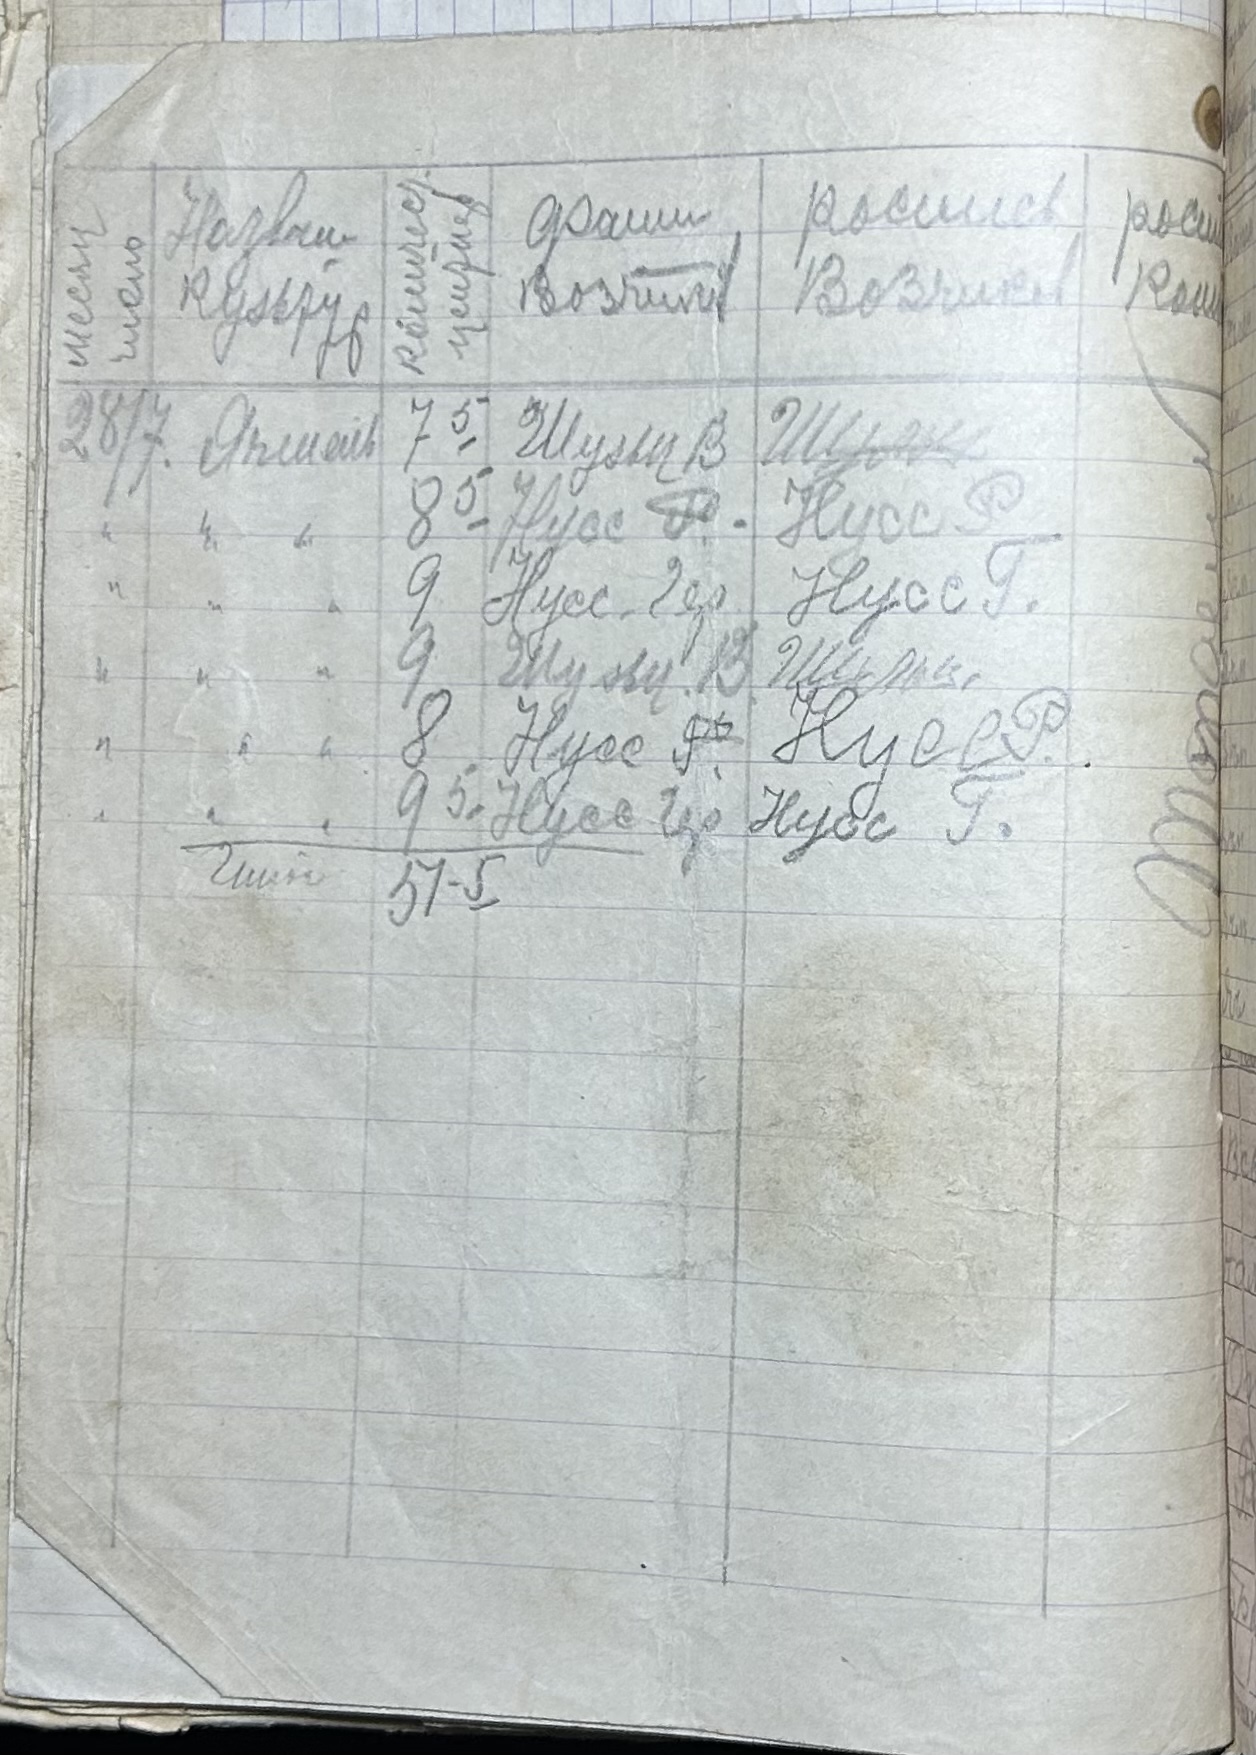 месяц число | Назван. культур | количест. центнер | фами возчиков | роспис возчиков | роспи
28/7. Ячмень 7 5 Шульц В
" " " 8 5 Нусс Р. Нусс Р
" " " 9 Нусс Гер Нусс Г.
" " " 9 Шульц. В
" " " 8 Нусс Р. Нусс Р.
" " " 9 5. Нусс Гер Нусс Г.
Итого 51-5